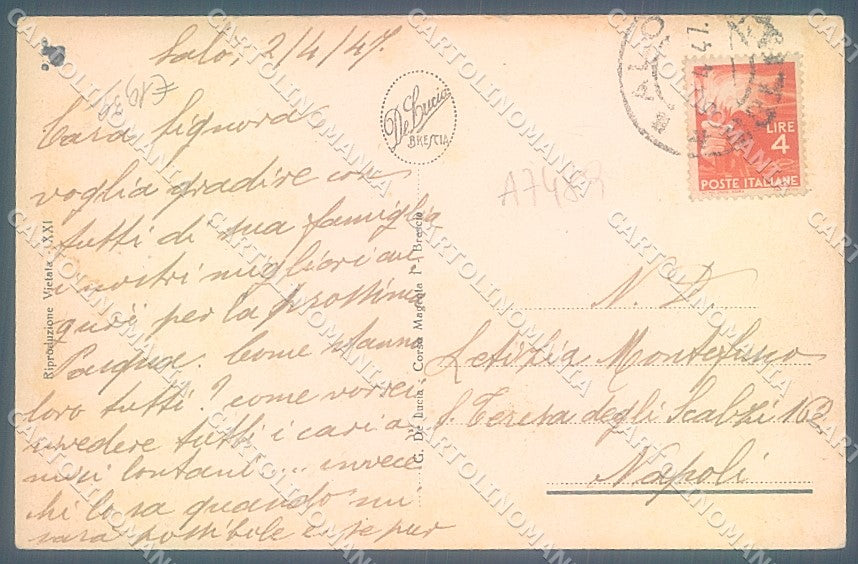 Salò, 2/4/47.
Cara Signora
voglia gradire con
tutti di sua famiglia
i nostri migliori au
guri per la prossima
Pasqua. Come stanno
loro tutti? come vorrei
rivedere tutti i cari a
mici lontani... invece
chi lo sa quando mi
sarà possibile eppur
€19,39
De Lucia
BRESCIA
A7489
LIRE
4
POSTE ITALIANE
N. D.
Letizia Montefusco
S. Teresa degli Scalzi 162
Napoli
Riproduzione Vietata - XXI
G. De Lucia - Corso Magenta 1 - Brescia
CARTOLINOMANIA